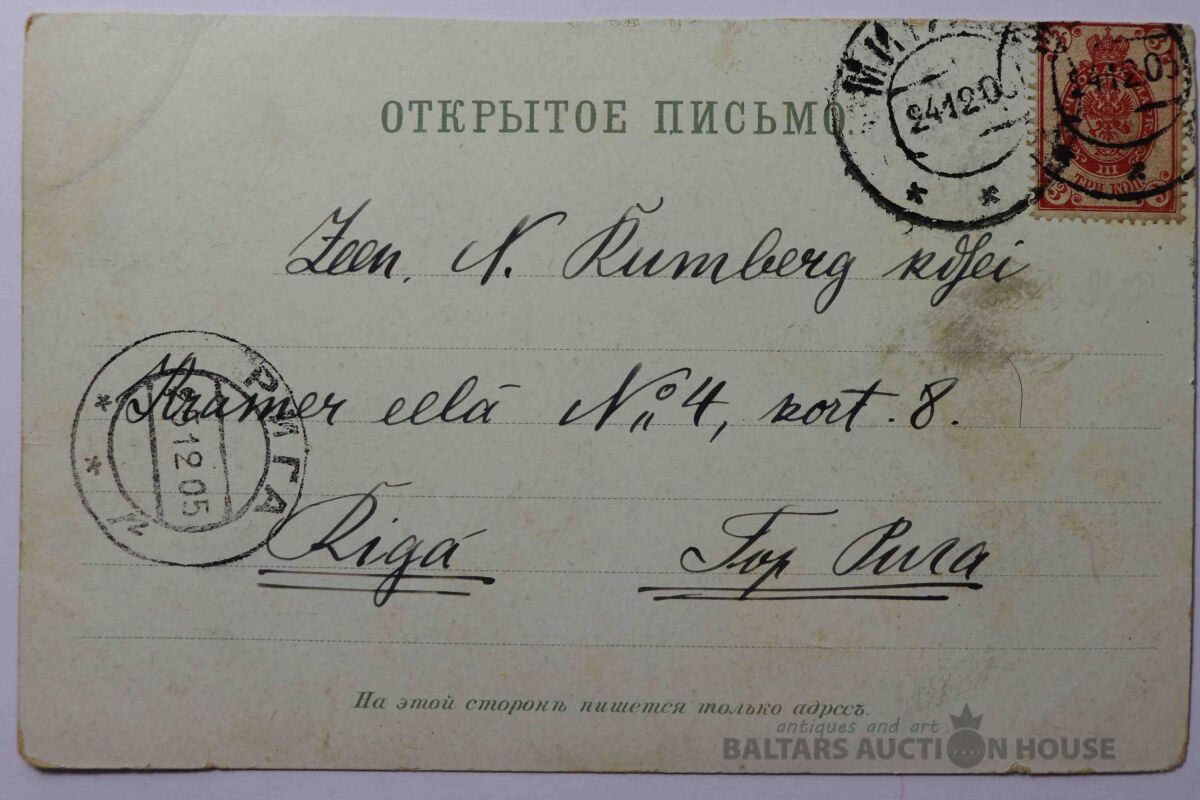 ОТКРЫТОЕ ПИСЬМО.
24 12 05
24 12 0
III
ТРИ КОП.
Zeen. N. Rumberg kdsei
Kramer eelā No 4, kort. 8.
РИГА
12 05
Rigá
Гор Рига
На этой сторонѣ пишется только адресъ.
antiques and art
BALTARS AUCTION HOUSE